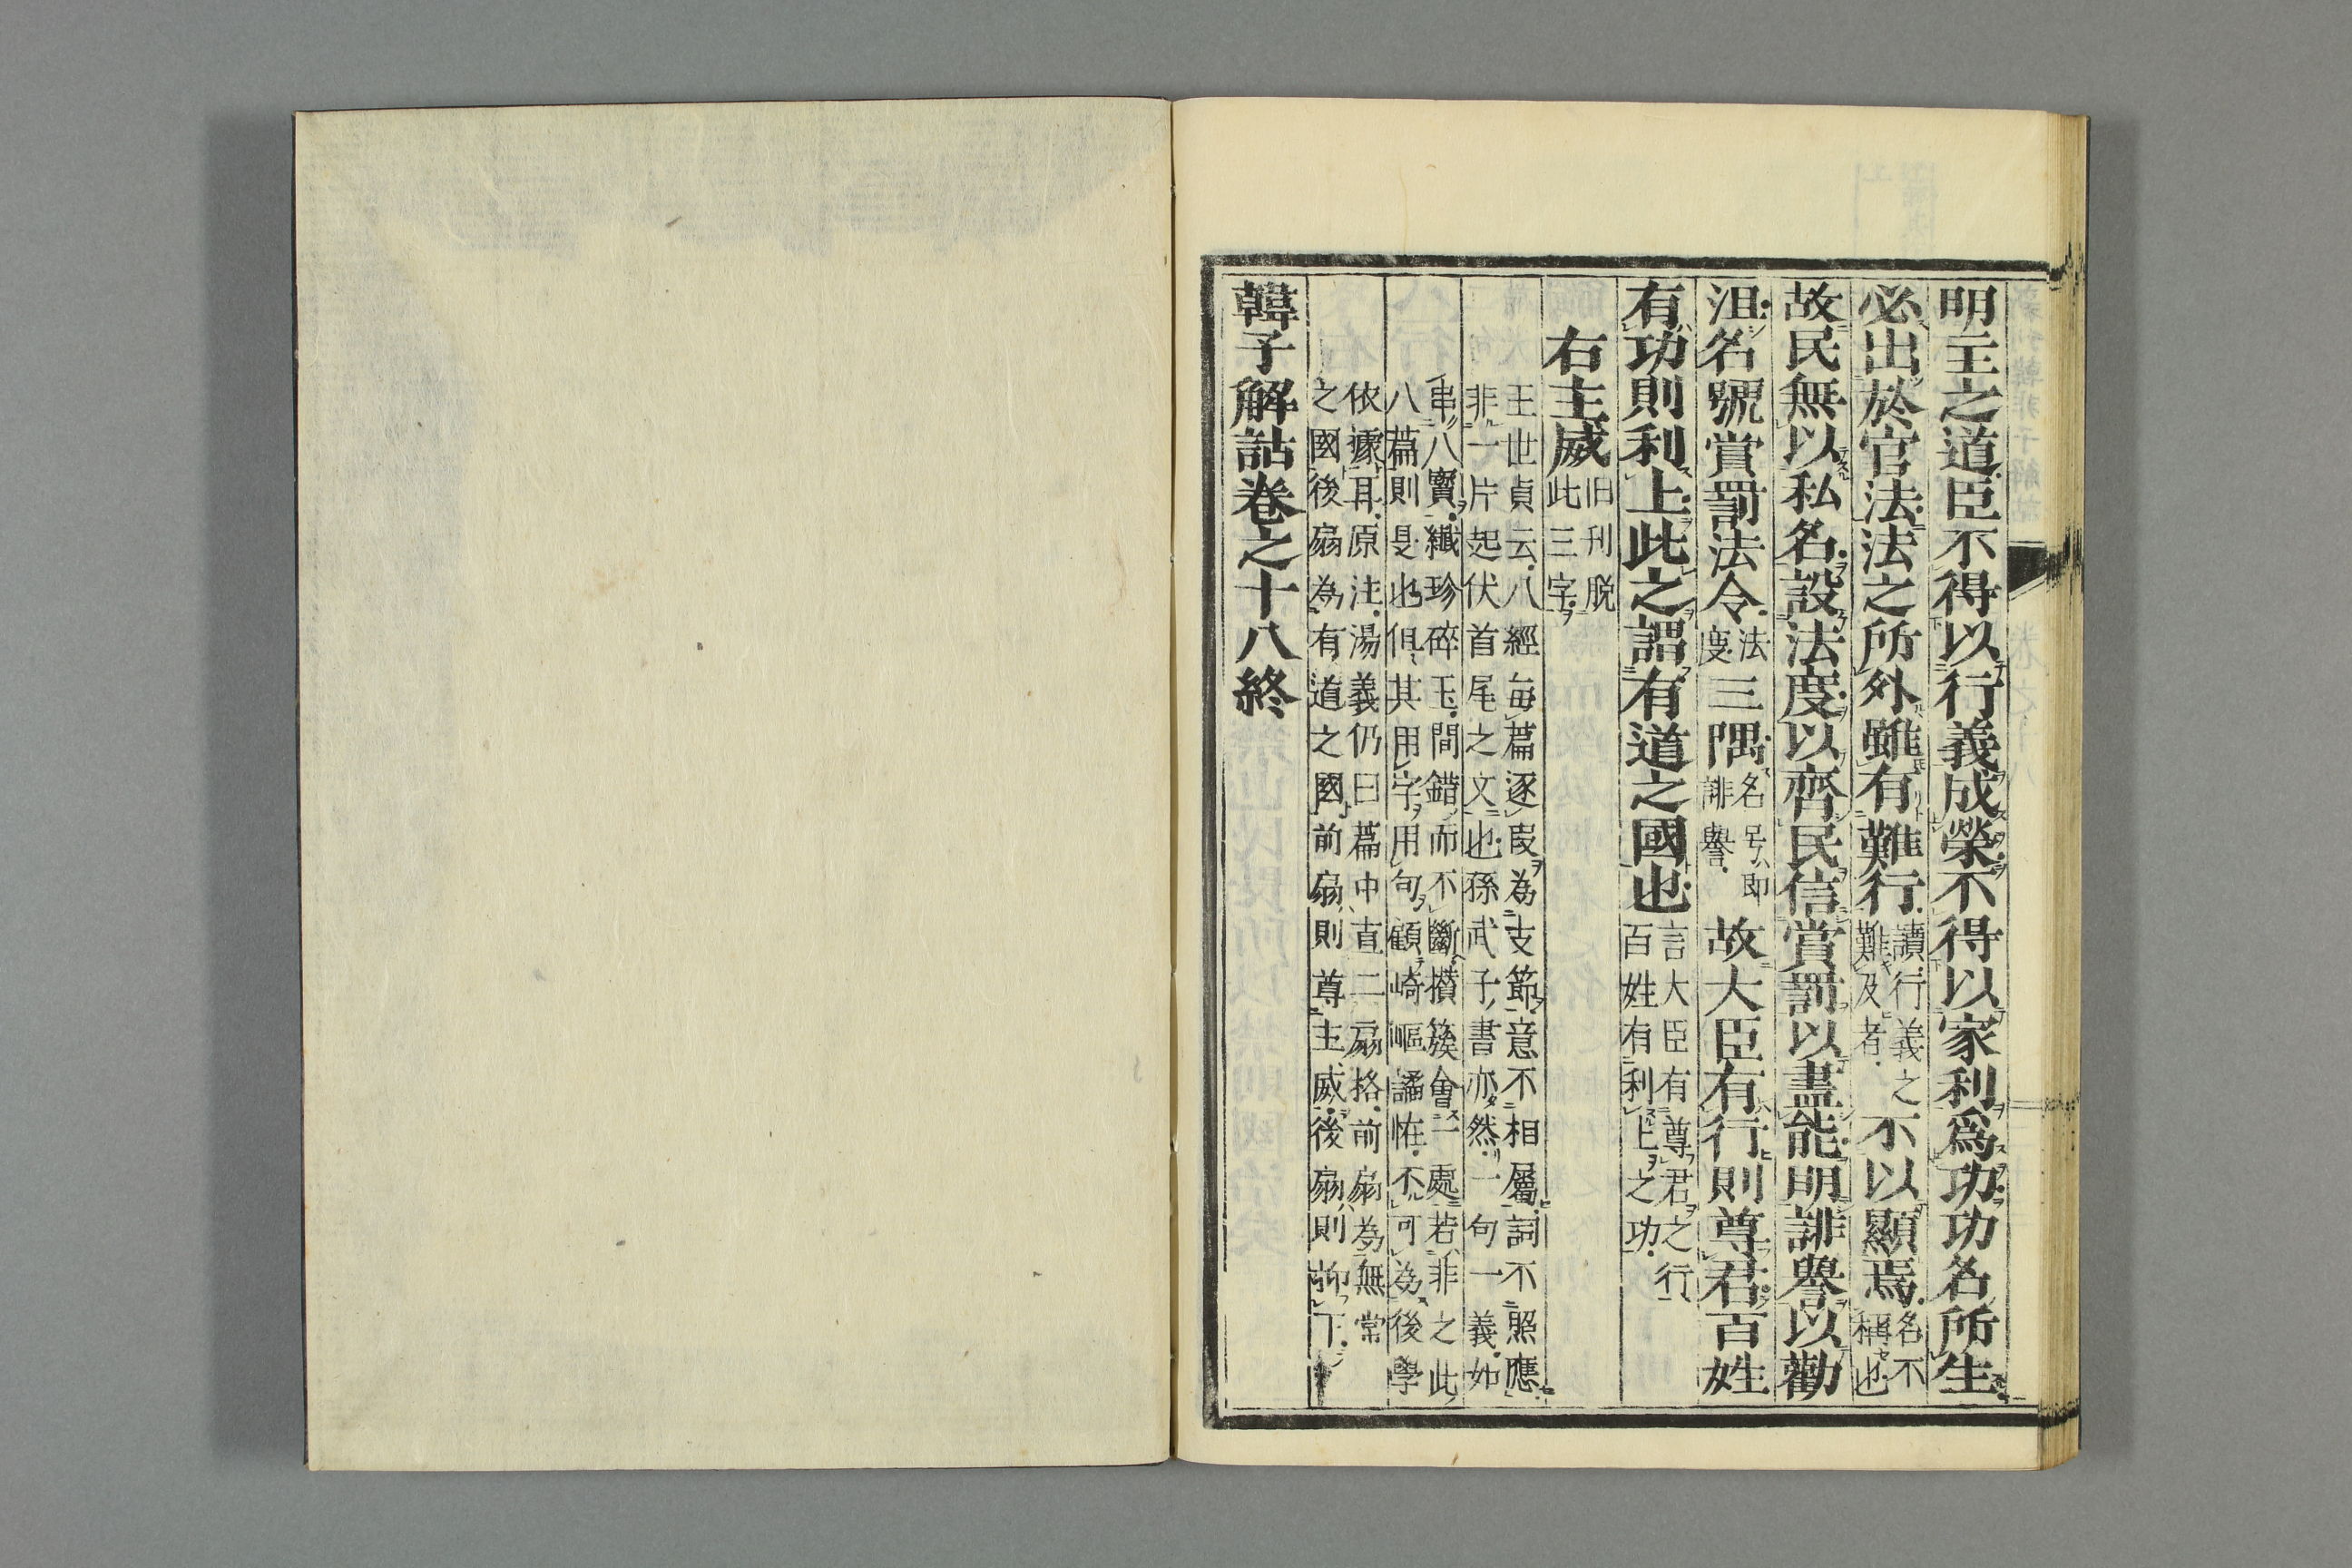 明主之道臣不得以行義成榮不得以家利爲功功名所生
必出於官法法之所外雖有難行讀行義之難及者不以顯焉名不稱也
故民無以私名設法度以齊民信賞罰以盡能明誹譽以勸
沮名號賞罰法令法度三隅名号即誹譽故大臣有行則尊君百姓
有功則利上此之謂有道之國也言大臣有尊君之行百姓有利上之功
右主威旧刊脱此三字
王世貞云八經每篇逐段為支節意不相屬詞不照應
非一片起伏首尾之文也孫武子書亦然一句一義如
串八寶纖珍碎玉間錯而不斷攢簇會一處若非之此
八篇則是也但其用字用句顧崎嶇譎恠不可為後學
依據耳原注湯義仍曰篇中直二扇格前扇為無常
之國後扇為有道之國前扇則尊主威後扇則抑下
韓子解詁卷之十八終